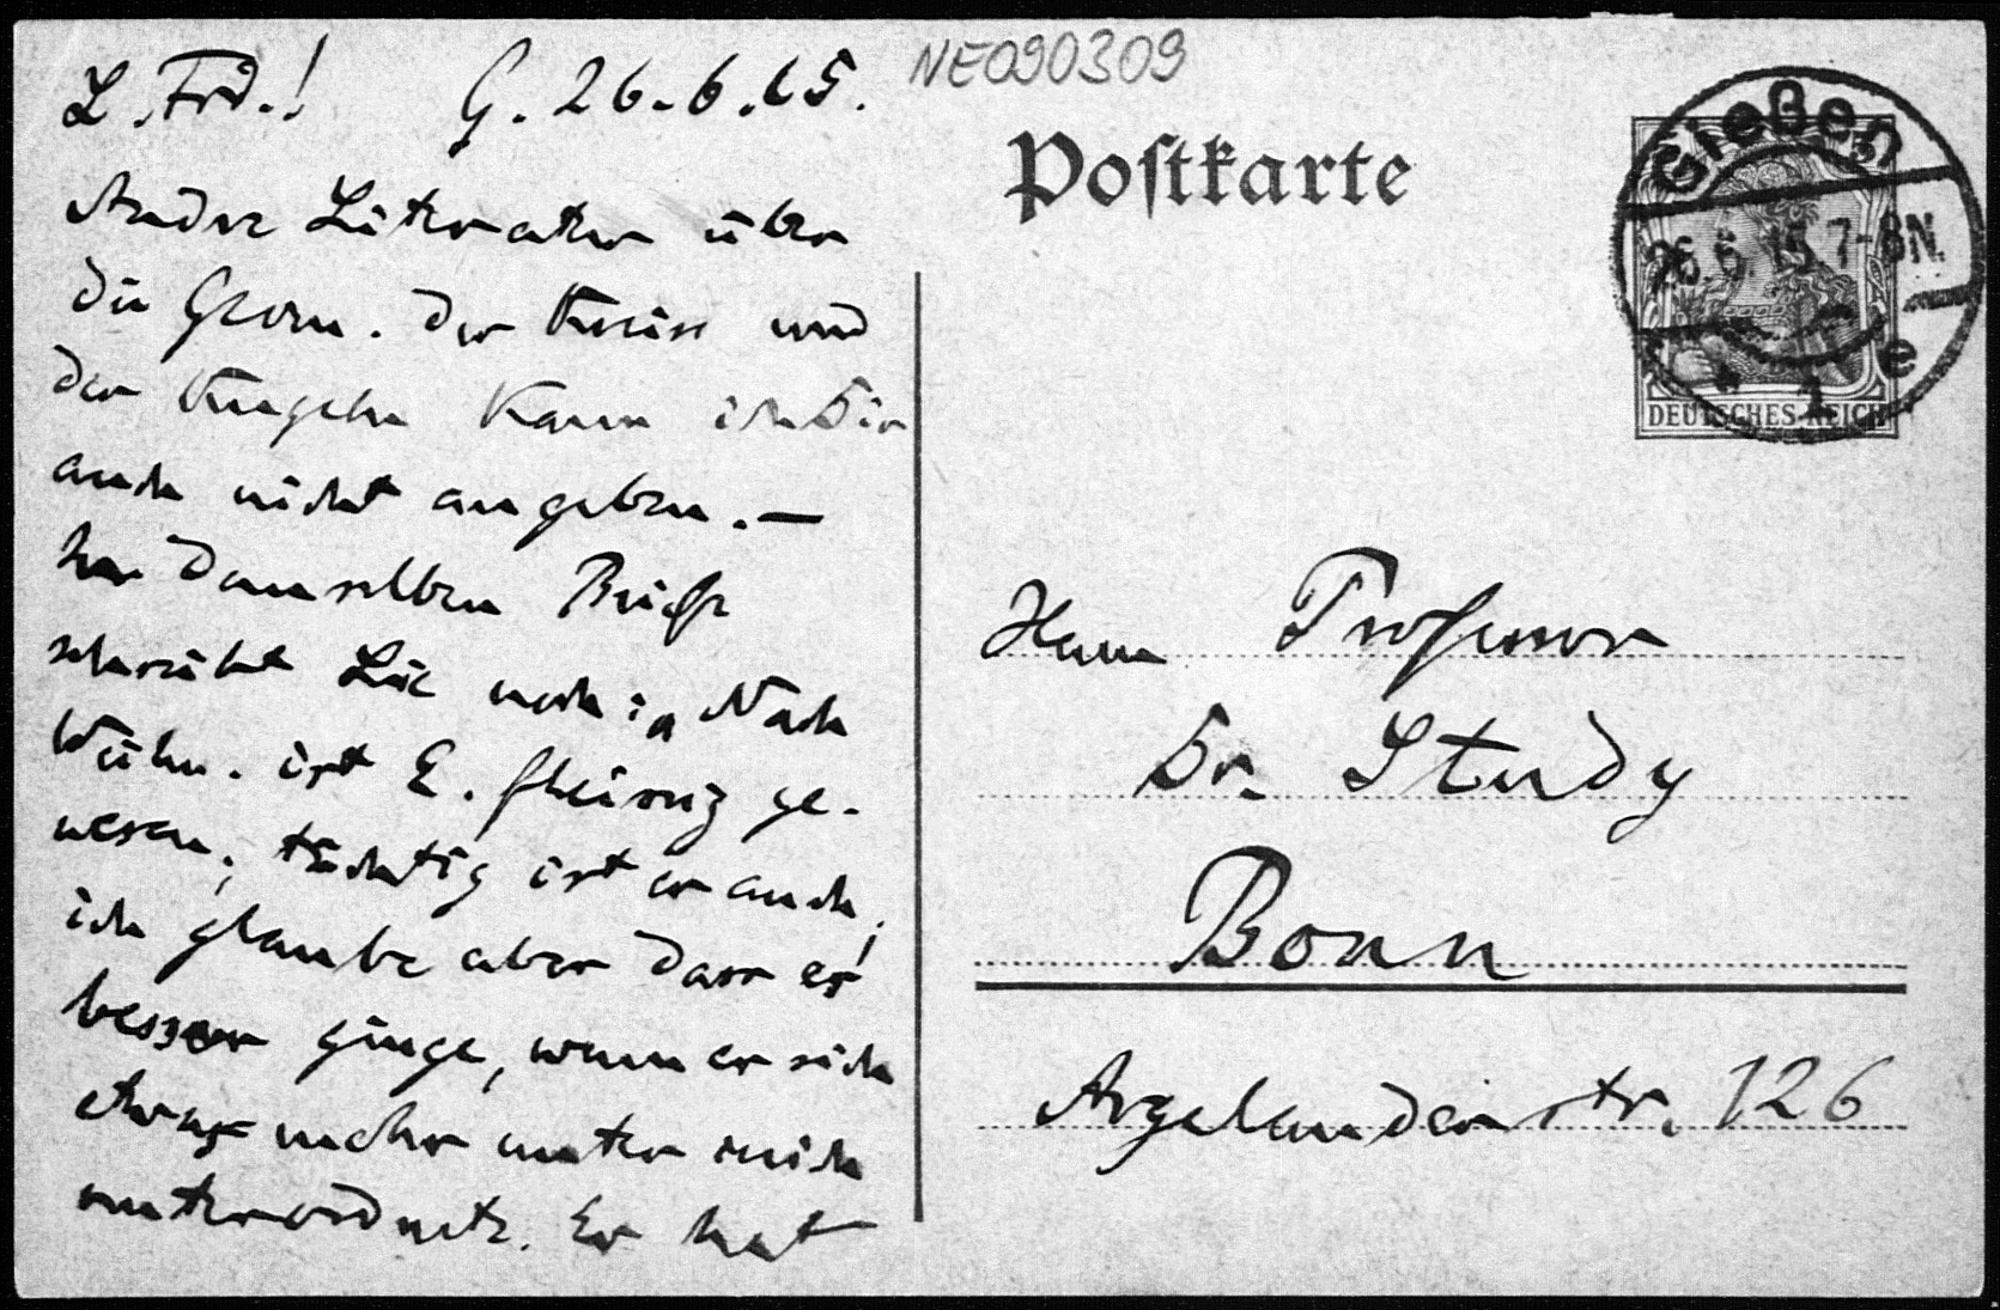 L. Frd.! G. 26.6.15.
Andre Literatur über
die Geom. der Kreise und
der Kugeln kann ich Dir
auch nicht angeben. —
In demselben Briefe
schreibt Lie noch: „Nach
Weihn. ist E. fleissig ge-
wesen; tüchtig ist er auch;
ich glaube aber dass es
besser ginge, wenn er sich
etwas mehr unter mich
unterordnete. Er hat
NE090309
Postkarte
Gießen
26.6.15.7-8N.
* 1 e
DEUTSCHES REICH
Herrn Professor
Dr. Study
Bonn
Argelanderstr. 126